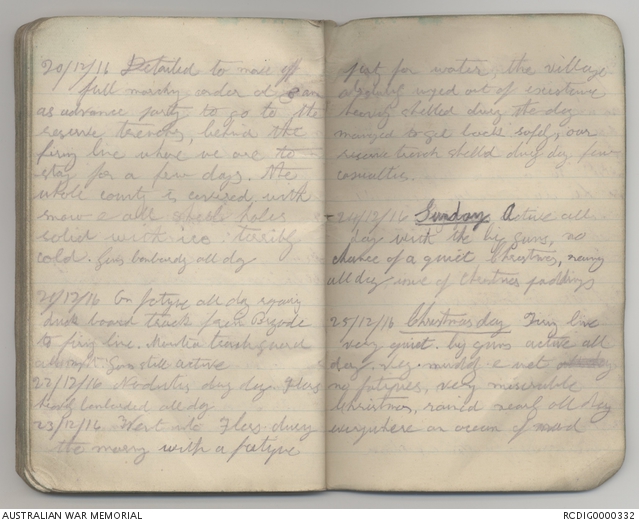 20/12/16 Detailed to move off
full marchg order at 8 am
as advance party to go to the
reserve trenches, behind the
firing line where we are to
stay for a few days. The
whole county is covered with
snow & all shell holes
solid with ice. terribly
cold. Guns bombardg all day
21/12/16 On fatigue all day
duck board track from Brigade
to firing line.
Guns still active
22/12/16 No duties day. Flers
heavy bombarded all day
23/12/16 Went into Flers during
the morng with a fatigue
for water, the village
out of existence
heavily shelled during the day
manged to get back safely, our
reserve trench shelled durg day few
casualties.
24/12/16 Sunday Active all
day with the big guns, no
chance of a quiet Christmas, raing
all day issue of Christmas puddings
25/12/16 Christmas day Firing line
very quiet. big guns active all
day. & wet
no fatigues, very miserable
Christmas, rained nearly all day
everywhere an ocean of mud
AUSTRALIAN WAR MEMORIAL
RCDIG0000332